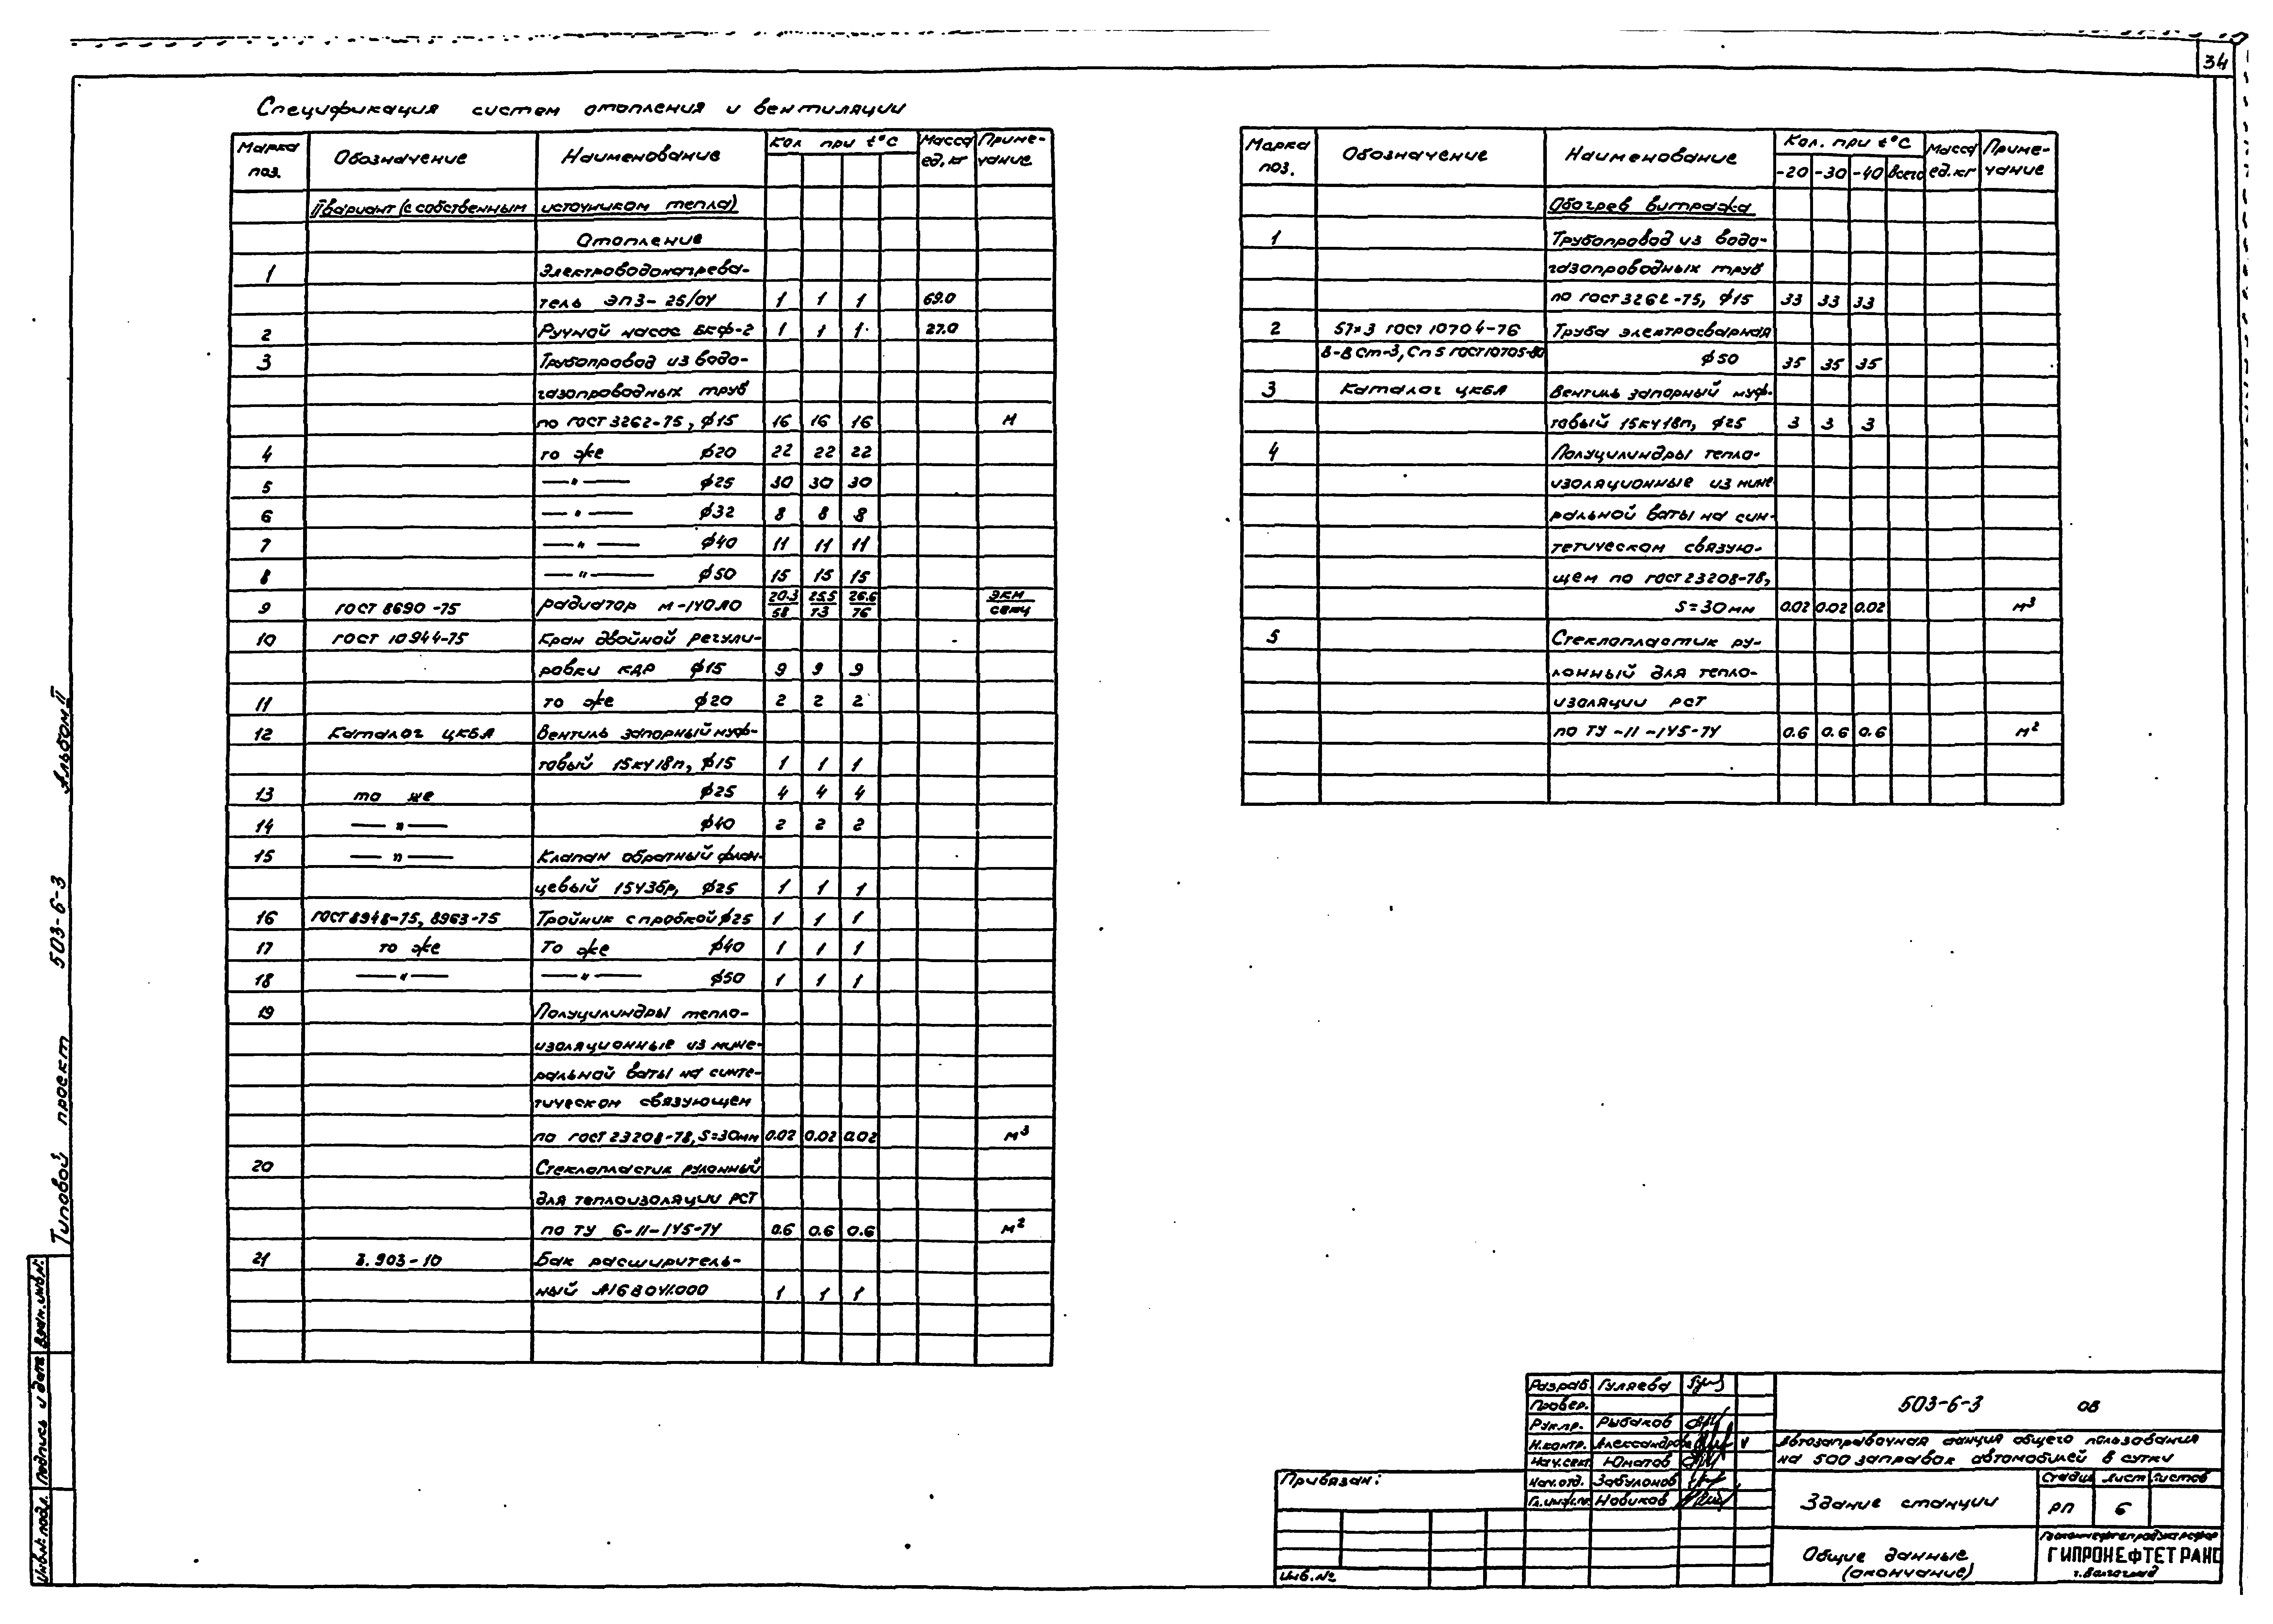 34
Спецификация систем отопления и вентиляции
Марка поз. Обозначение Наименование Кол при t°C Масса ед, кг Приме-чание
II вариант (с собственным источником тепла)
Отопление
1 Электроводонагрева-
тель ЭПЗ-25/04 1 1 1 69.0
2 Ручной насос БКФ-2 1 1 1 27.0
3 Трубопровод из водо-
газопроводных труб
по ГОСТ 3262-75, ϕ15 16 16 16 м
4 то же ϕ20 22 22 22
5 —"— ϕ25 30 30 30
6 —"— ϕ32 8 8 8
7 —"— ϕ40 11 11 11
8 —"— ϕ50 15 15 15
9 ГОСТ 8690-75 радиатор М-140АО 20.3/58 25.5/73 26.6/76 экм/секц
10 ГОСТ 10944-75 Кран двойной регули-
ровки КДР ϕ15 9 9 9
11 то же ϕ20 2 2 2
12 Каталог ЦКБА Вентиль запорный муф-
товый 15кч18п, ϕ15 1 1 1
13 то же ϕ25 4 4 4
14 —"— ϕ40 2 2 2
15 —"— Клапан обратный флан-
цевый 15ч3бр, ϕ25 1 1 1
16 ГОСТ 8948-75, 8963-75 Тройник с пробкой ϕ25 1 1 1
17 то же То же ϕ40 1 1 1
18 —"— —"— ϕ50 1 1 1
19 Полуцилиндры тепло-
изоляционные из мине-
ральной ваты на синте-
тическом связующем
по ГОСТ 23208-78, S=30мм 0.02 0.02 0.02 м³
20 Стеклопластик рулонный
для теплоизоляции РСТ
по ТУ 6-11-145-74 0.6 0.6 0.6 м²
21 3.903-10 Бак расширитель-
ный 1 1 1
Марка поз. Обозначение Наименование Кол. при t°C -20 -30 -40 всего Масса ед. кг Приме-чание
Обогрев витража
1 Трубопровод из водо-
газопроводных труб
по ГОСТ 3262-75, ϕ15 33 33 33
2 57×3 ГОСТ 10704-76 Труба электросварная
В-В Ст-3, Сп 5 ГОСТ 10705-80 ϕ50 35 35 35
3 Каталог ЦКБА Вентиль запорный муф-
товый 15кч18п, ϕ25 3 3 3
4 Полуцилиндры тепло-
изоляционные из мине
ральной ваты на син-
тетическом связую-
щем по ГОСТ 23208-78,
S=30мм 0.02 0.02 0.02 м³
5 Стеклопластик ру-
лонный для тепло-
изоляции РСТ
по ТУ-11-145-74 0.6 0.6 0.6 м²
Типовой проект 503-6-3 Альбом II
Инв.№ подл. Подпись и дата Взам.инв.№.
Привязан:
Инв.№
Разраб. Гуляева
Провер.
Рук.пр. Рыбаков
Н.контр. Александрова
Нач.сект. Юматов
Нач.отд. Забулонов
Гл.инж.пр. Новиков
503-6-3 ОВ
Автозаправочная станция общего пользования
на 500 заправок автомобилей в сутки
Здание станции
Стадия Лист Листов
РП 6
Общие данные
(окончание)
ГИПРОНЕФТЕТРАНС
г. Волгоград